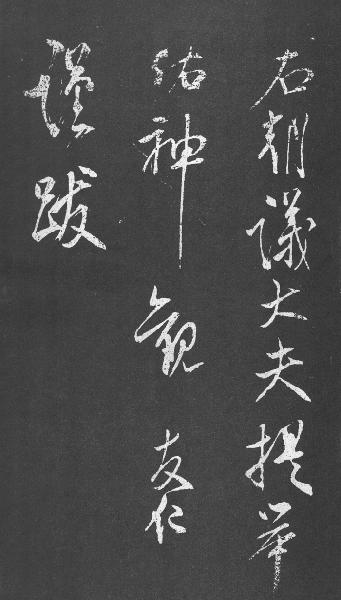 右朝議大夫提舉
佑神觀友仁
謹跋